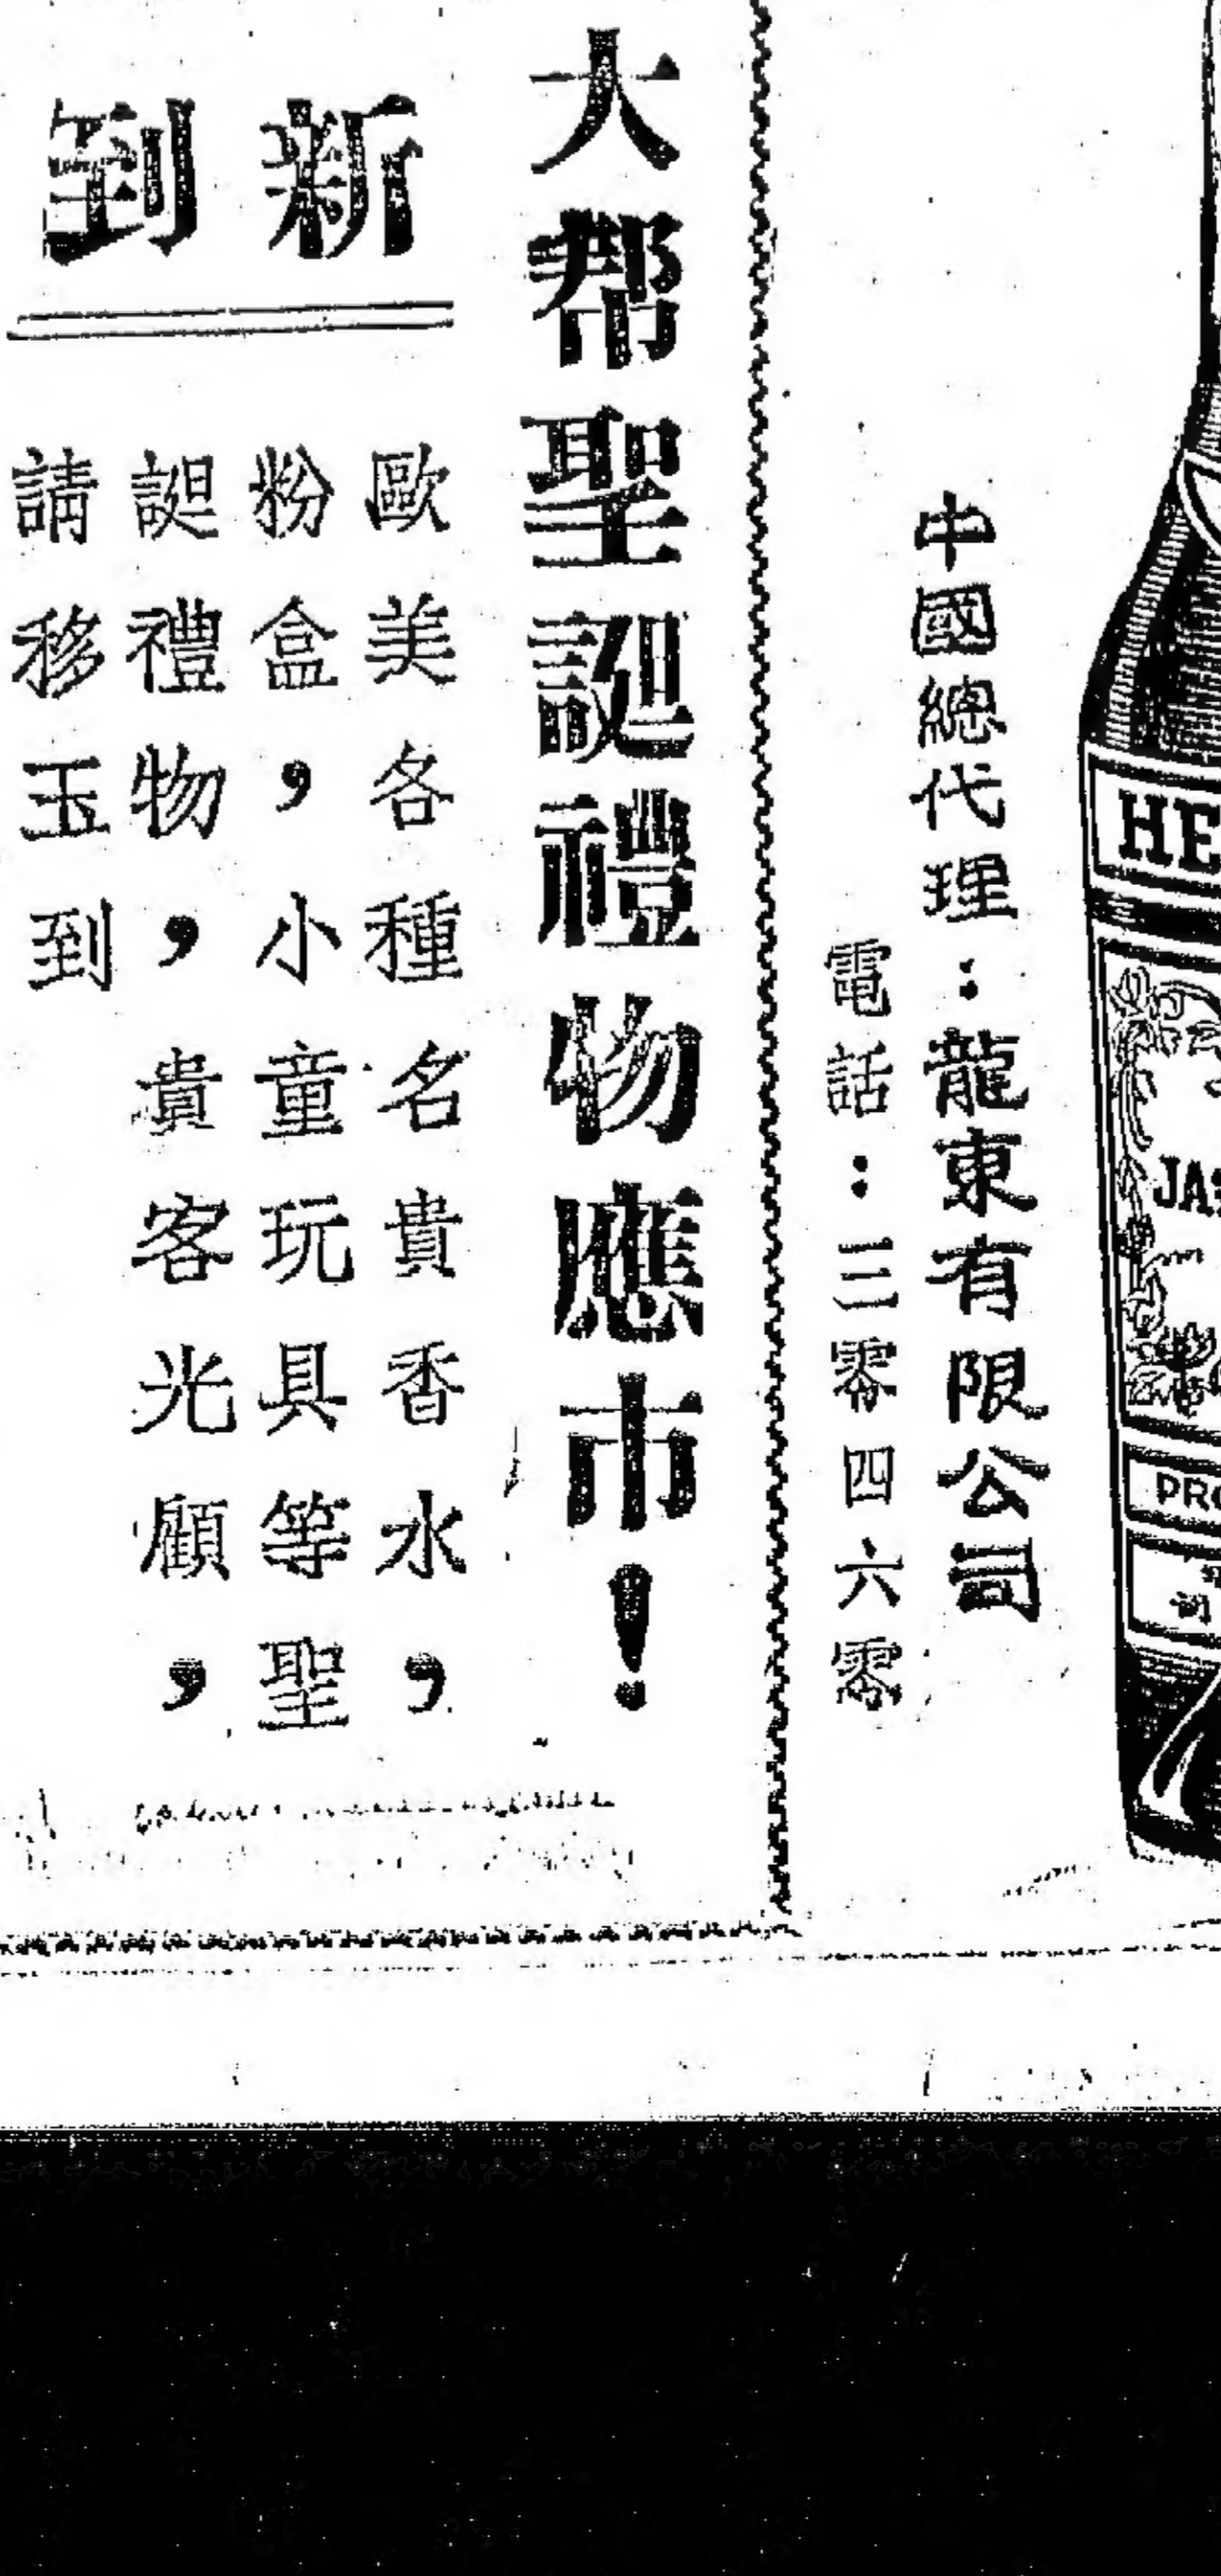 HE
JAS
PRO
司
中國總代理：龍東有限公司
電話：三零四六零
大帮聖誕禮物應市！
新到
歐美各種名貴香水，
粉盒，小童玩具等聖
誕禮物，貴客光顧，
請移玉到